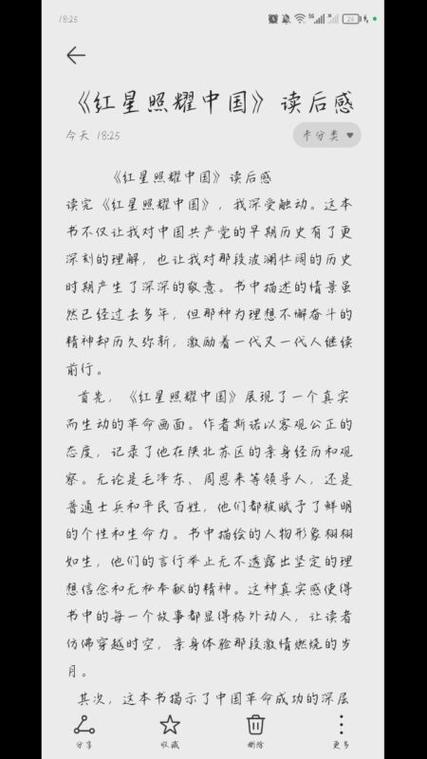 18:25
24
《红星照耀中国》读后感
今天 18:25
未分类
《红星照耀中国》读后感
读完《红星照耀中国》，我深受触动。这本
书不仅让我对中国共产党的早期历史有了更
深刻的理解，也让我对那段波澜壮阔的历史
时期产生了深深的敬意。书中描述的情景虽
然已经过去多年，但那种为理想不懈奋斗的
精神却历久弥新，激励着一代又一代人继续
前行。
首先，《红星照耀中国》展现了一个真实
而生动的革命画面。作者斯诺以客观公正的
态度，记录了他在陕北苏区的亲身经历和观
察。无论是毛泽东、周恩来等领导人，还是
普通士兵和平民百姓，他们都被赋予了鲜明
的个性和生命力。书中描绘的人物形象栩栩
如生，他们的言行举止无不透露出坚定的理
想信念和无私奉献的精神。这种真实感使得
书中的每一个故事都显得格外动人，让读者
仿佛穿越时空，亲身体验那段激情燃烧的岁
月。
其次，这本书揭示了中国革命成功的深层
分享
收藏
删除
更多